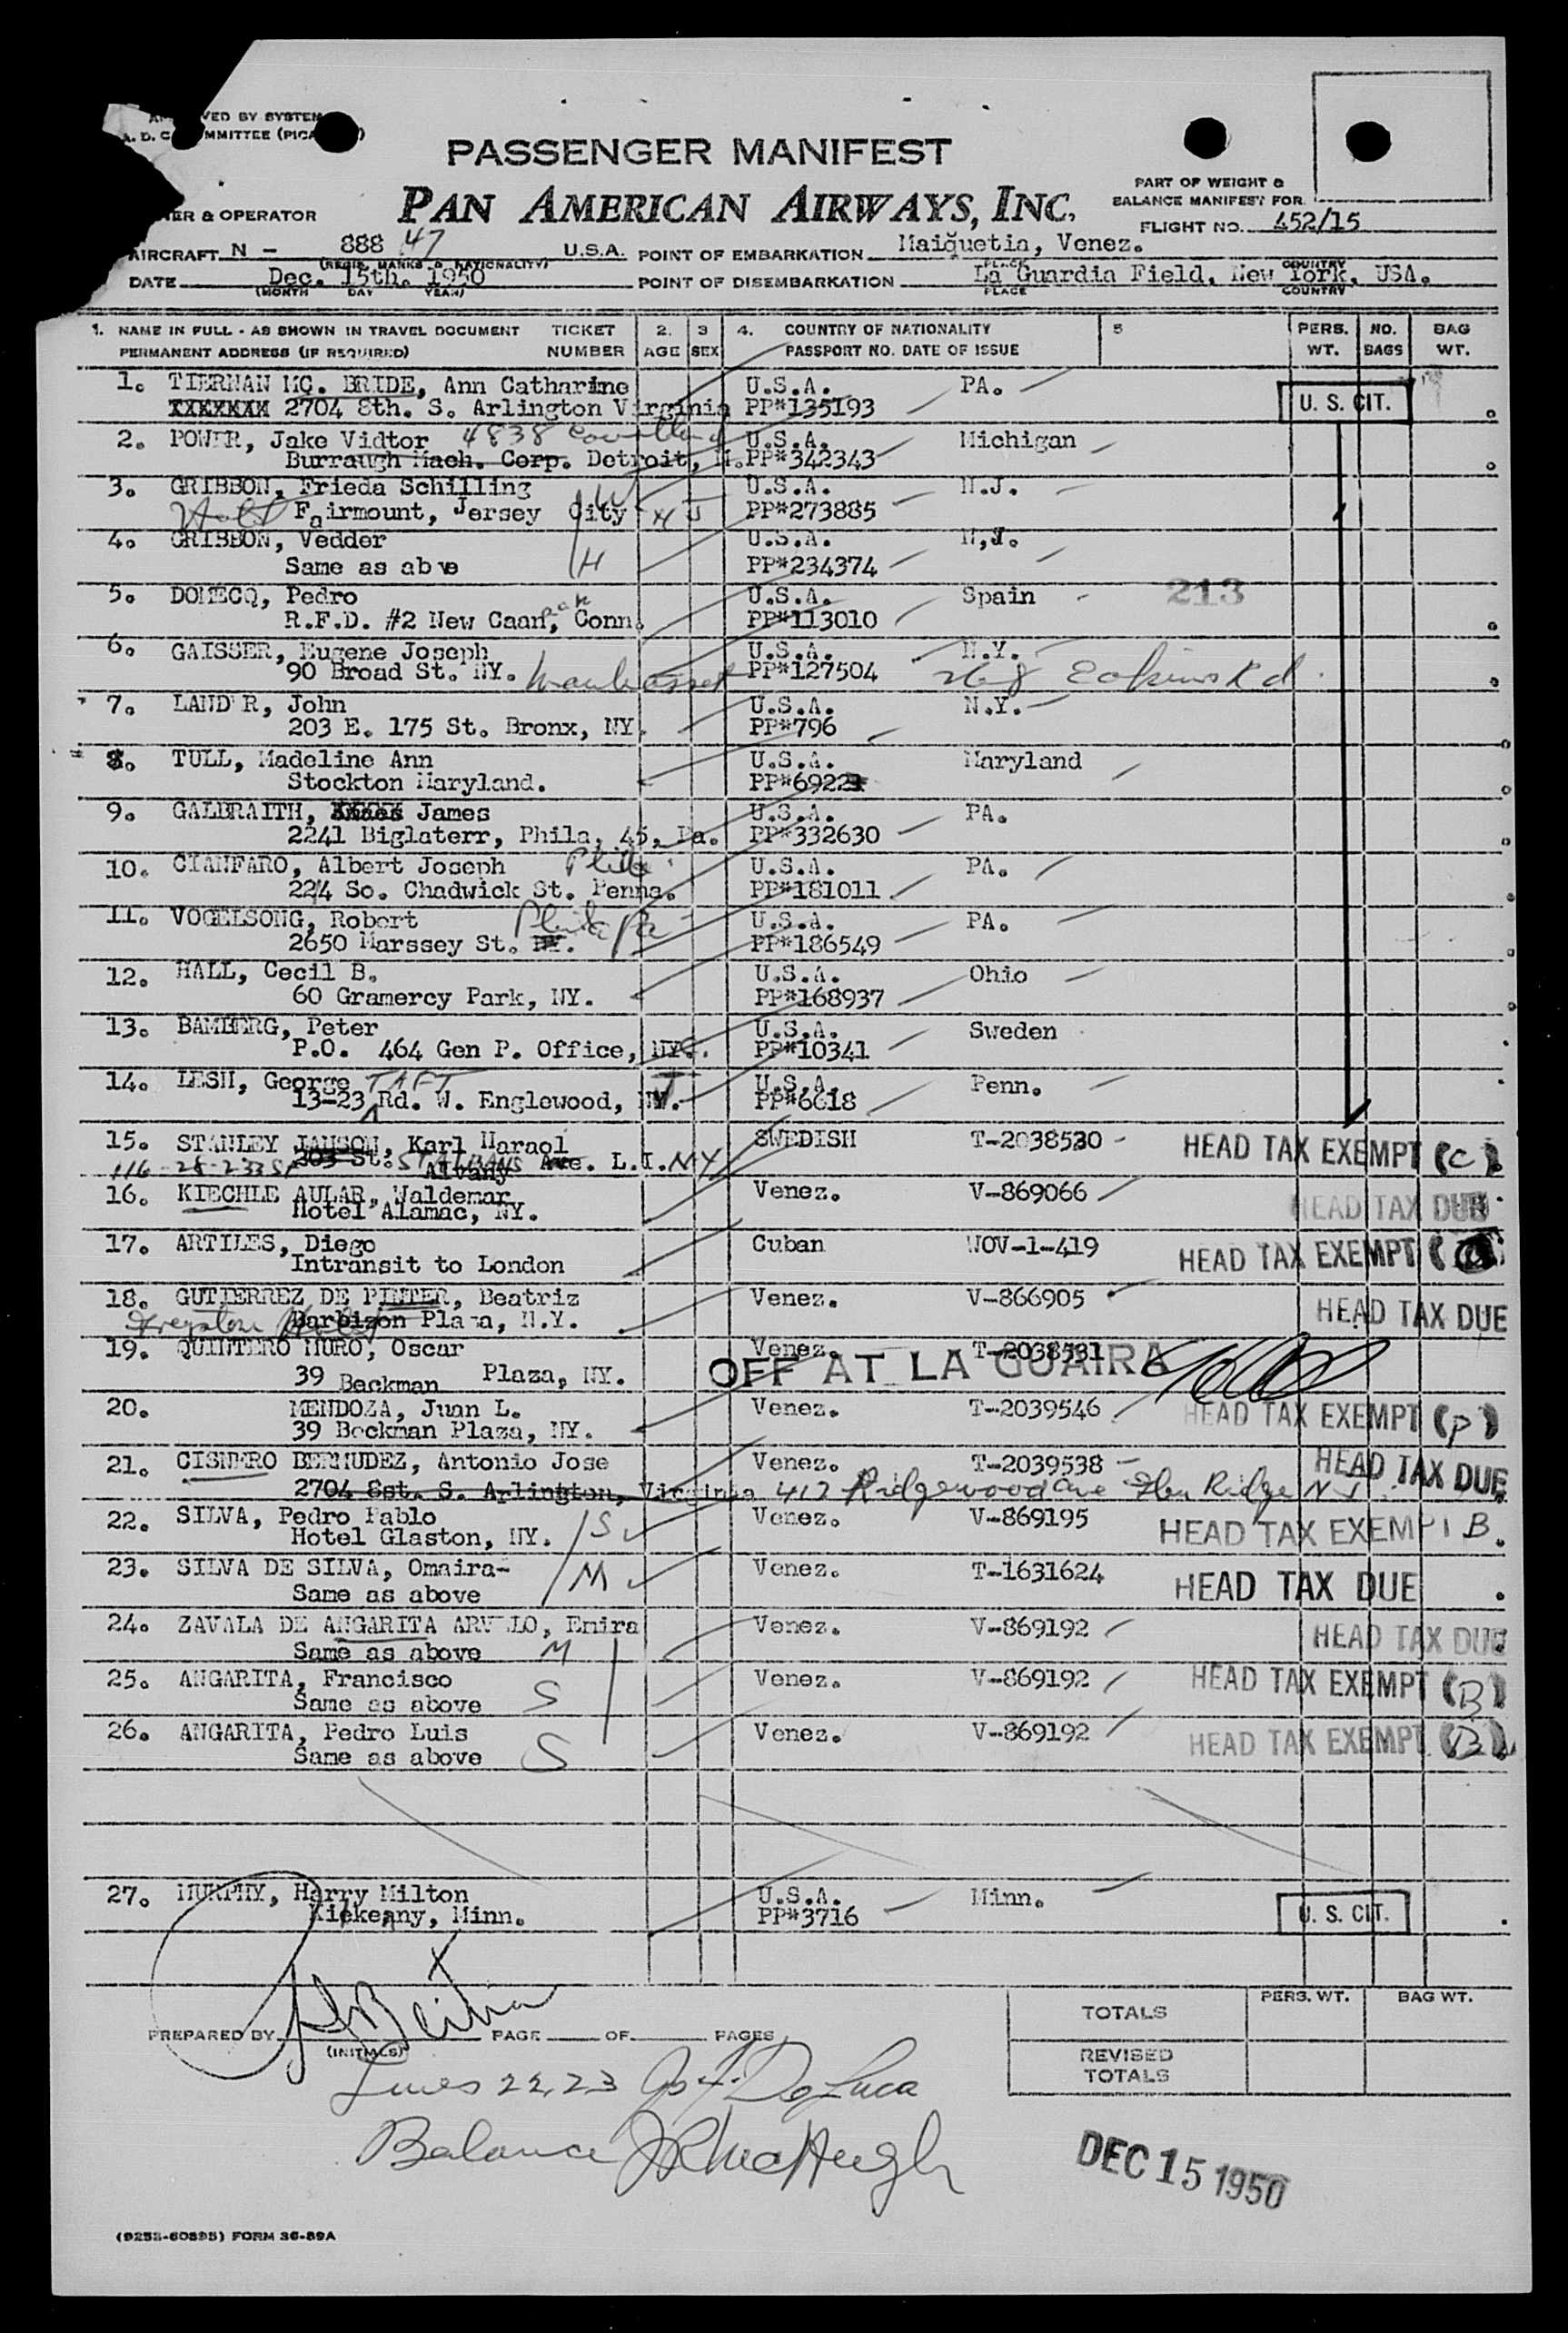 VED BY SYSTEM
MMITTEE (PICA
PASSENGER MANIFEST
PAN AMERICAN AIRWAYS, INC.
PART OF WEIGHT &
BALANCE MANIFEST FOR
FLIGHT NO. 452/15
& OPERATOR
AIRCRAFT N - 888 47 U.S.A. POINT OF EMBARKATION Maiquetia, Venez.
(REGIS. MARKS & NATIONALITY) PLACE COUNTRY
DATE Dec. 15th. 1950 POINT OF DISEMBARKATION La Guardia Field, New York, USA.
(MONTH DAY YEAR) PLACE COUNTRY
1. NAME IN FULL - AS SHOWN IN TRAVEL DOCUMENT TICKET 2. 3 4. COUNTRY OF NATIONALITY 5 PERS. NO. BAG
PERMANENT ADDRESS (IF REQUIRED) NUMBER AGE SEX PASSPORT NO. DATE OF ISSUE WT. BAGS WT.
1. TIERNAN MC. BRIDE, Ann Catharine U.S.A. PA.
XXXXXXX 2704 8th. S. Arlington Virginia PP#135193 U. S. CIT.
2. POWER, Jake Vidtor 4838 U.S.A. Michigan
Burraugh Mach. Corp. Detroit, M. PP#342343
3. GRIBBON, Frieda Schilling W U.S.A. N.J.
Fairmount, Jersey City N J PP#273885
4. GRIBBON, Vedder U.S.A. N,J.
Same as ab ve H PP#234374
5. DOMECQ, Pedro U.S.A. Spain 213
R.F.D. #2 New Caan, Conn. PP#113010
6. GAISSER, Eugene Joseph U.S.A. N.Y.
90 Broad St. NY. Manhasset PP#127504 268 Eakins Rd.
7. LAND R, John U.S.A. N.Y.
203 E. 175 St. Bronx, NY. PP#796
8. TULL, Madeline Ann U.S.A. Maryland
Stockton Maryland. PP#6922
9. GALBRAITH, James U.S.A. PA.
2241 Biglaterr, Phila, 45, Pa. PP#332630
10. CIANFARO, Albert Joseph Phila. U.S.A. PA.
224 So. Chadwick St. Penna. PP#181011
11. VOGELSONG, Robert Phila Pa U.S.A. PA.
2650 Marssey St. PP#186549
12. HALL, Cecil B. U.S.A. Ohio
60 Gramercy Park, NY. PP#168937
13. BAMBERG, Peter U.S.A. Sweden
P.O. 464 Gen P. Office, NYC. PP#10341
14. LESH, George TAFT J U.S.A. Penn.
13-23 Rd. W. Englewood, N. PP#6618
15. STANLEY JANSON, Karl Haraol SWEDISH T-2038530 HEAD TAX EXEMPT (C)
116-28-233 St 203 St. ST ALBANS Ave. L.I. NY
Albany
16. KIECHLE AULAR, Waldemar Venez. V-869066 HEAD TAX DUE
Hotel Alamac, NY.
17. ARTILES, Diego Cuban WOV-1-419 HEAD TAX EXEMPT
Intransit to London
18. GUTIERREZ DE PINTER, Beatriz Venez. V-866905 HEAD TAX DUE
Barbizon Plaza, N.Y.
19. QUINTERO MURO, Oscar Venez. T-2038531
39 Beekman Plaza, NY. OFF AT LA GUAIRA
20. MENDOZA, Juan L. Venez. T-2039546 HEAD TAX EXEMPT (P)
39 Beckman Plaza, NY.
21. CISNERO BERMUDEZ, Antonio Jose Venez. T-2039538 HEAD TAX DUE
2704 8st. S. Arlington, Virginia 417 Ridgewood Ave Glen Ridge N J
22. SILVA, Pedro Pablo S Venez. V-869195 HEAD TAX EXEMPT B
Hotel Glaston, NY.
23. SILVA DE SILVA, Omaira- M Venez. T-1631624 HEAD TAX DUE
Same as above
24. ZAVALA DE ANGARITA ARV LO, Emira Venez. V-869192 HEAD TAX DUE
Same as above M
25. ANGARITA, Francisco Venez. V-869192 HEAD TAX EXEMPT (B)
Same as above S
26. ANGARITA, Pedro Luis Venez. V-869192 HEAD TAX EXEMPT (B)
Same as above S
27. MURPHY, Harry Milton U.S.A. Minn.
Kiekeany, Minn. PP#3716 U. S. CIT.
PREPARED BY PAGE OF PAGES
(INITIALS)
TOTALS PERS. WT. BAG WT.
REVISED
TOTALS
Lines 22, 23 Jos. F. DeLuca
Balance J R McHugh
DEC 15 1950
(9252-60595) FORM 36-89A